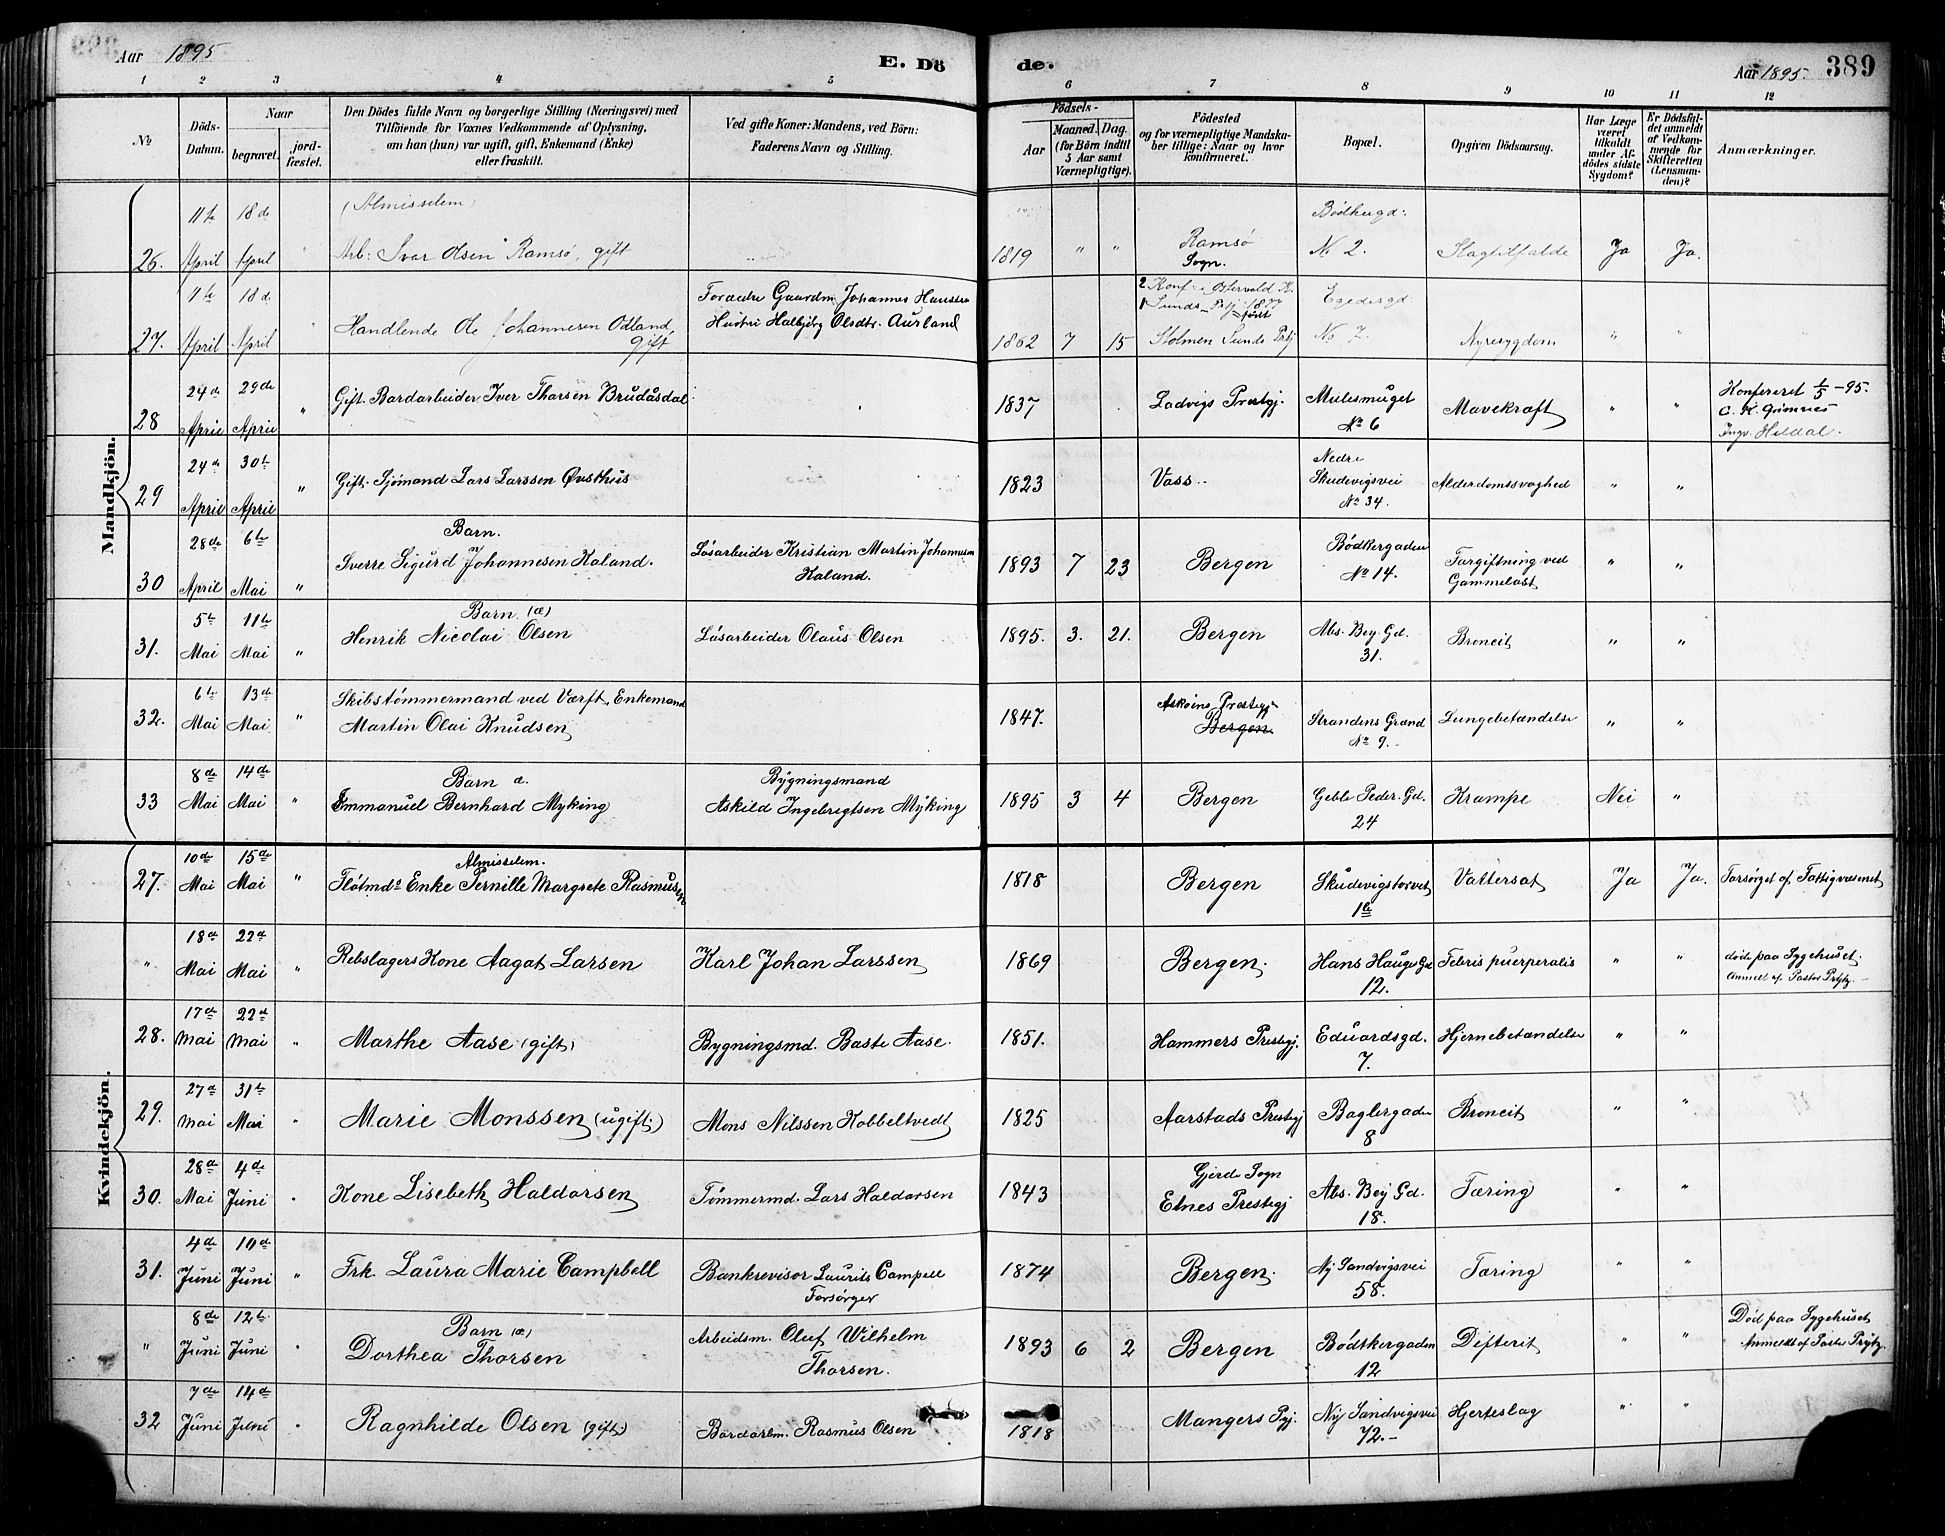 Aar 1895 E. Dö
de. Aar 1895. 389
1 2 3 4 5 6 7 8 9 10 11 12
No
Döds-Datum.
Naar
begravet.
jord-fæstet.
Den Dödes fulde Navn og borgerlige Stilling (Næringsvei) med
Tilföiende for Voxnes Vedkommende af Oplysning,
om han (hun) var ugift, gift, Enkemand (Enke)
eller fraskilt.
Ved gifte Koner: Mandens, ved Börn:
Faderens Navn og Stilling.
Födsels-
Aar
Maaned. Dag.
(for Börn indtil
5 Aar samt
Værnepligtige).
Födested
og for værnepligtige Mandska-
ber tillige: Naar og hvor
konfirmeret.
Bopæl.
Opgiven Dödsaarsag.
Har Læge
været
tilkaldt
under Af-
dödes sidste
Sygdom?
Er Dödsfal-
det anmeldt
af Vedkom-
mende for
Skifteretten
(Lensman-
den)?
Anmærkninger.
Mandkjön.
11te 18de (Almisselem) Bödkergd:
26. April April " Arb: Ivar Olsen Ramsø, gift 1819 " " Ramsø Sogn. No 2. Slagtilfælde Ja Ja.
18de Forældre Gaardm. Johannes Hansen Egedesgd
27. April April " Handlende Ole Johannesen Odland, gift Hustru Halbjörg Olsdtr. Aurland 1862 7 15 Stolmen Sunds Prtj No 7. Nyresygdom " "
24de 29de
28 April April " Gift. Bordarbeider Iver Thorsen Brudåsdal 1837 Ladvigs Prestgj. Mulesmuget No 6 Mavekræft " " Konfereret 1/5-95.
C. K. Grimnes
Ingv. Heldal.
24de 30te
29 April April " Gift. Sjömand Lars Larssen Øvsthus 1823 Voss.. Nedre Skudevigsvei No 34. Alderdomssvaghed " "
28de 6te Barn.
30 April Mai " Sverre Sigurd Johannesen Kaland. Løsarbeider Kristian Martin Johannesen Kaland. 1893 7 23 Bergen Bødkergaden No 14. Forgiftning ved Gammelost " "
5te 11te Barn (æ)
31. Mai Mai " Henrik Nicolai Olsen Løsarbeider Olaus Olsen 1895. 3. 21. Bergen Abs. Bey. Gd. 31. Broncit " "
6te 13de Skibstømmermand ved Værft, Enkemand
32. Mai Mai " Martin Olai Knudsen 1847. Askøins Prestegj. Bergen Strandens Grand No 9.- Lungebetændelse " "
8de 14de Barn æ. Bygningsmand
33 Mai Mai " Emmanuel Bernhard Myking Askild Ingebrigtsen Myking 1895 3 4 Bergen Geble Peder. Gd. 24 Krampe Nei "
Kvindekjön.
10de 15de Almisselem.
27. Mai Mai " Fløtmds Enke Pernille Margrete Rasmussen 1818 Bergen Skudevigstorvet 1b Vattersot Ja Ja. Forsørget af Fattigvæsenet
18d 22d
" Mai Mai " Rebslagers Kone Aagot Larsen Karl Johan Larssen 1869 Bergen. Hans Hauges Gd 12. Febris puerperalis " " døde paa Sygehuset.
Anmelt af Pastor Prytz.-
17de 22d
28. Mai Mai " Marthe Aase (gift) Bygningsmd. Baste Aase. 1851. Hammers Prestegj. Eduardsgd. 7. Hjernebetændelse " "
27d 31te
29. Mai Mai " Marie Monssen (ugift.) Mons Nilssen Kobbeltvedt 1825 Aarstads Prestegj Baglergaden 8 Broncit " "
28d 4de
30. Mai Juni " Kone Lisebeth Haldorsen Tømmermd. Lars Haldorsen 1843 Gjerde Sogn Etnes Prestegj Abs. Bey Gd. 18. Tæring " "
4de 10de
31. Juni Juni " Frk. Laura Marie Campbell Bankrevisor Laurits Campell Forsørger 1874 Bergen. Ny Sandvigsvei 58. Tæring " "
8de 12te Barn (æ)
" Juni Juni " Dorthea Thorsen Arbeidsm. Oluf Wilhelm Thorsen. 1893 6 2 Bergen Bødtkergaden 12 Difterit " " Død paa Sygehuset
Anmeldt af Pastor Prytz.
7de 14de
32 Juni Juni " Ragnhilde Olsen (gift) Bordarbm. Rasmus Olsen 1818 Mangers Pgj. Ny Sandvigsvei 72.- Hjerteslag " "